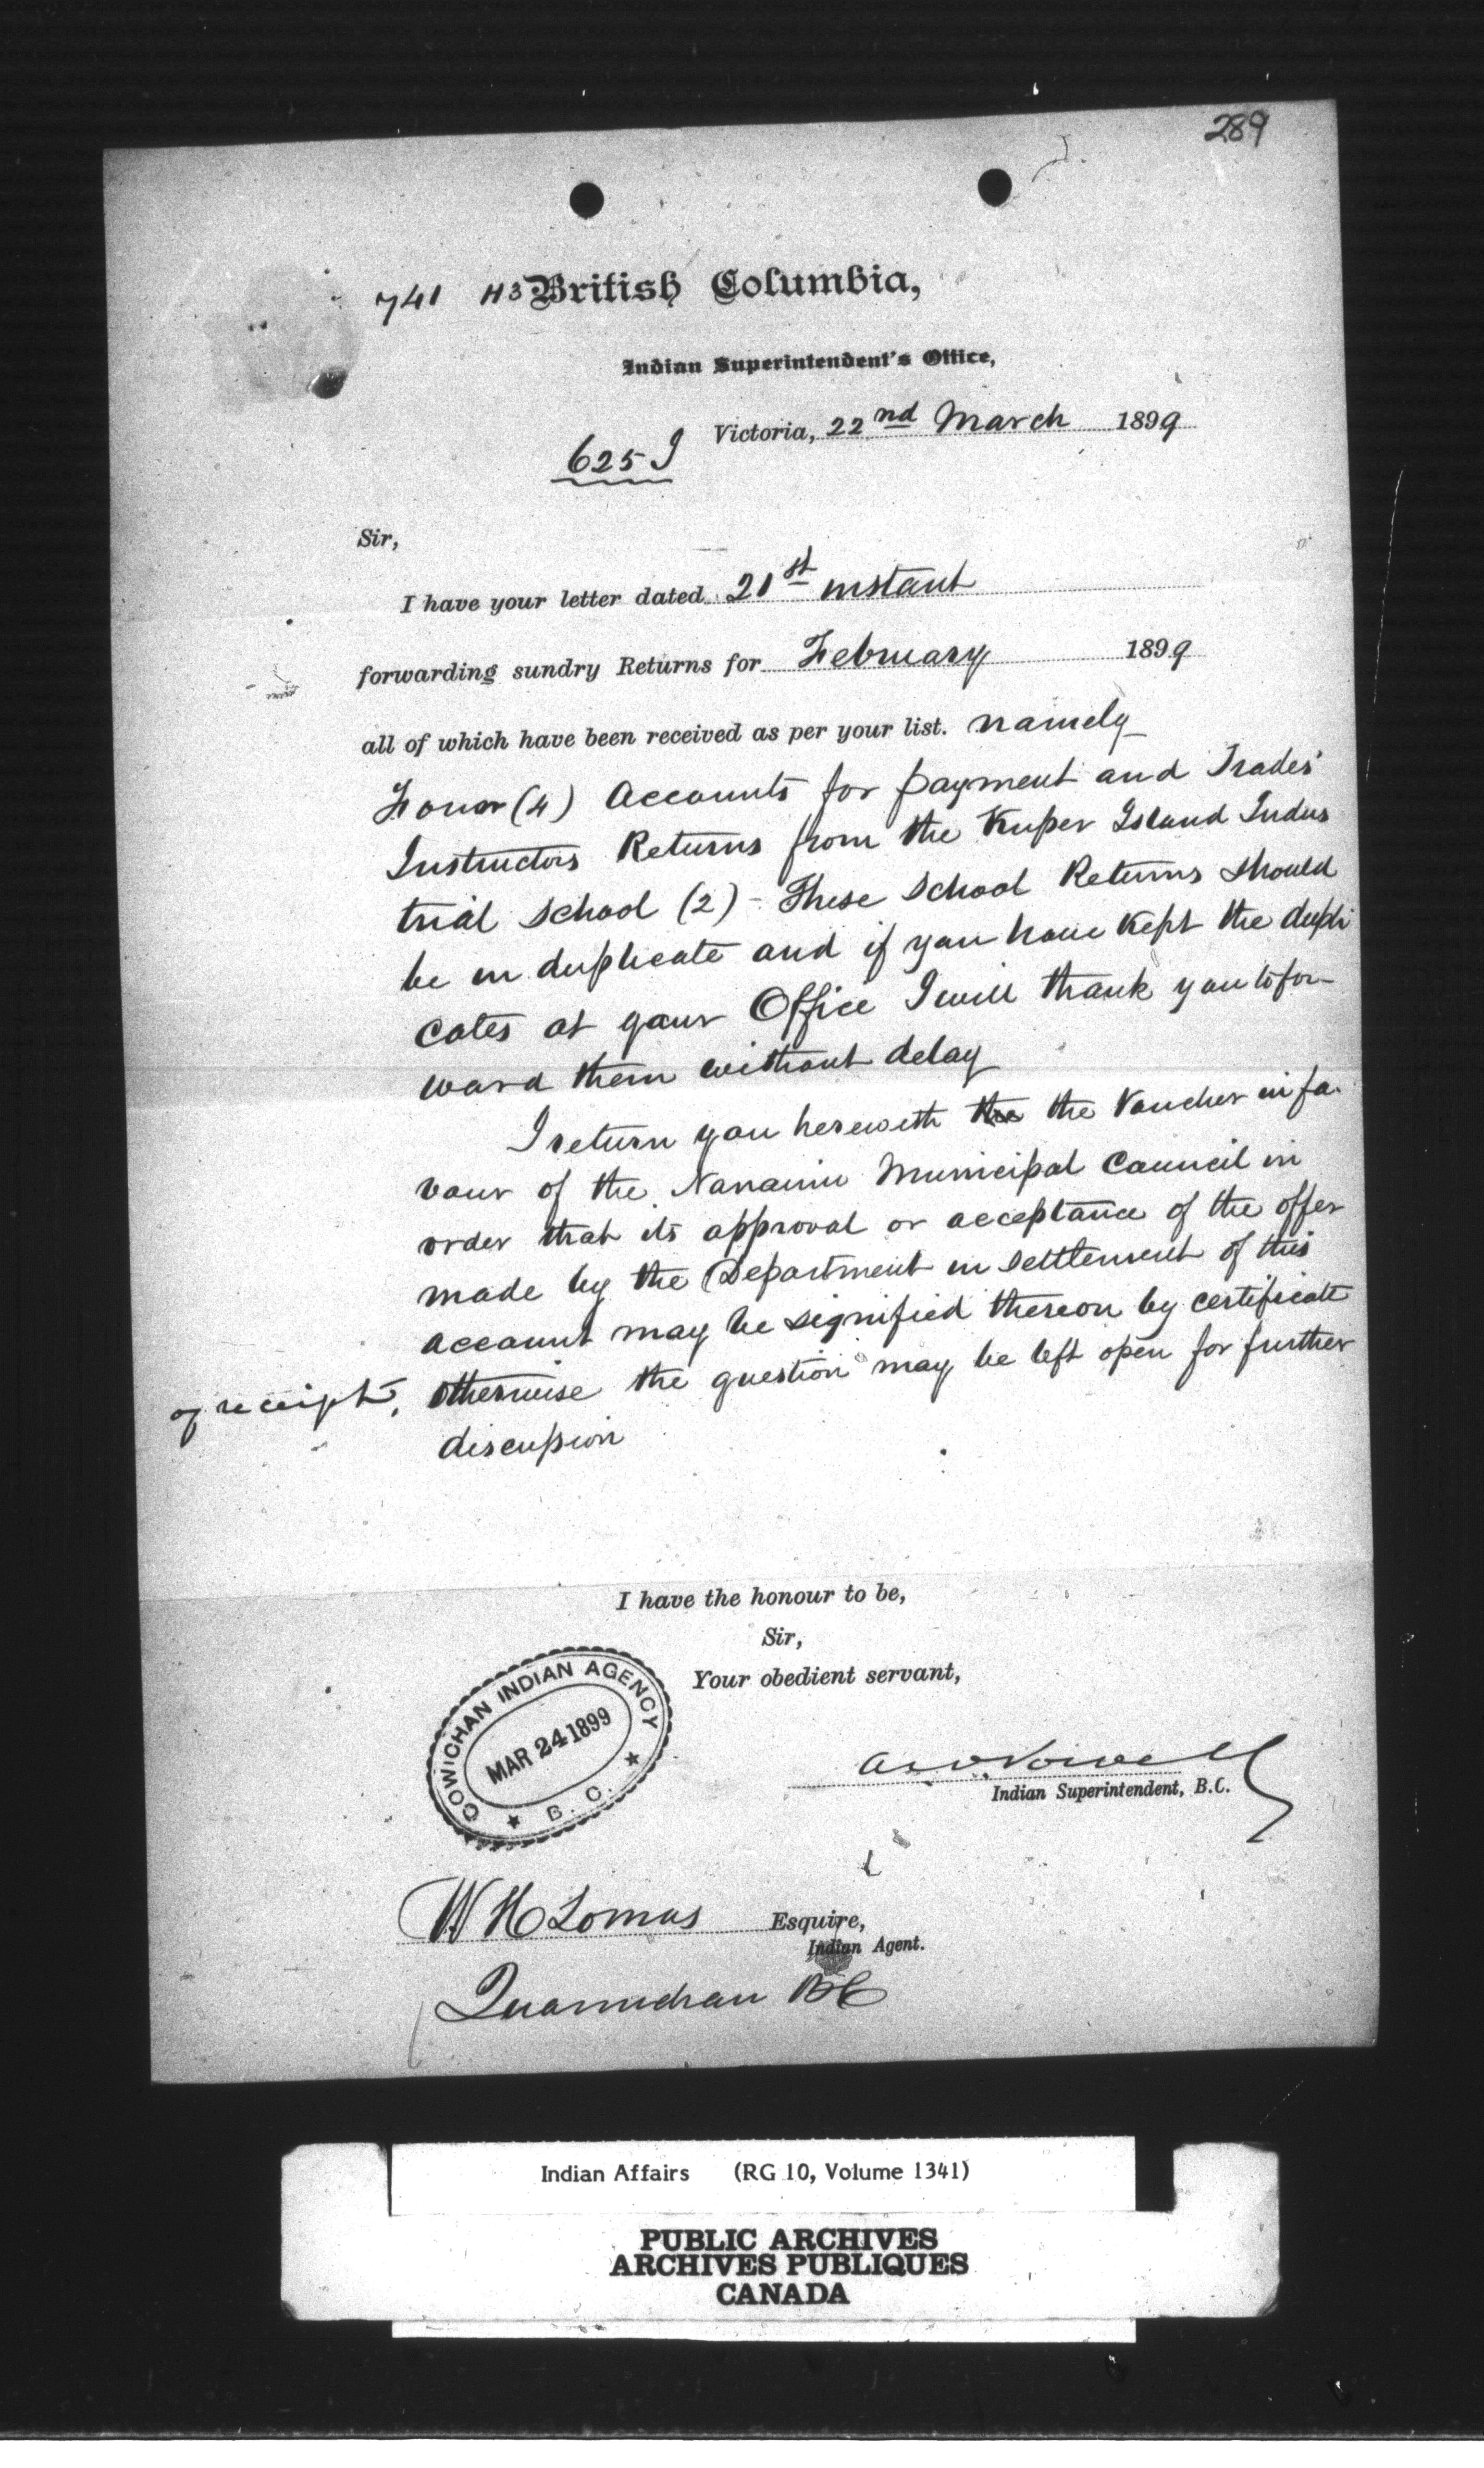 289
741 H3 British Columbia,
Indian Superintendent's Office,
Victoria, 22nd March 1899
625 J
Sir,
I have your letter dated 21st instant
forwarding sundry Returns for February 1899
all of which have been received as per your list. namely
Four (4) Accounts for payment and Trades'
Instructors Returns from the Kuper Island Indus
trial School (2) - These School Returns should
be in duplicate and if you have kept the dupli
cates at your Office I will thank you to for-
ward them without delay
I return you herewith the the Voucher in fa-
vour of the Nanaimo Municipal Council in
order that its approval or acceptance of the offer
made by the Department in settlement of this
account may be signified thereon by certificate
of receipt, otherwise the question may be left open for further
discussion
I have the honour to be,
Sir,
Your obedient servant,
COWICHAN INDIAN AGENCY
MAR 24 1899
★ B. C. ★
A. W. Vowell
Indian Superintendent, B.C.
W H Lomas Esquire,
Indian Agent.
Quamichan BC
Indian Affairs (RG 10, Volume 1341)
PUBLIC ARCHIVES
ARCHIVES PUBLIQUES
CANADA